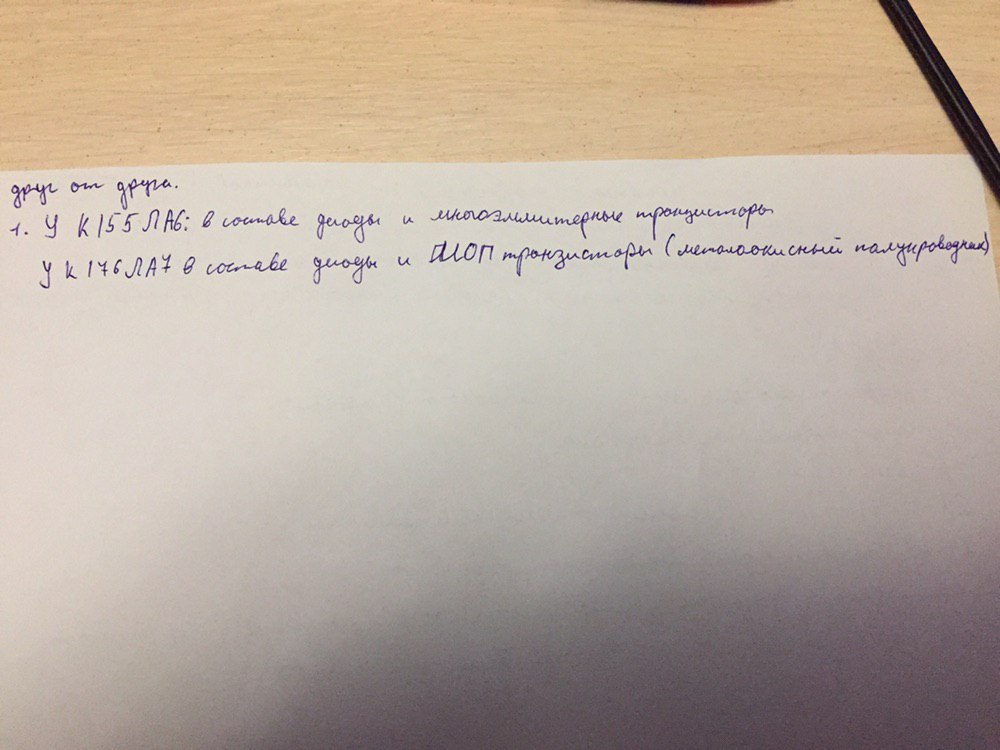 друг от друга.
1. У К155ЛА6: в составе диоды и многоэммитерные транзисторы
У К176ЛА7 в составе диоды и МОП транзисторы (металоокисный палупроводник)